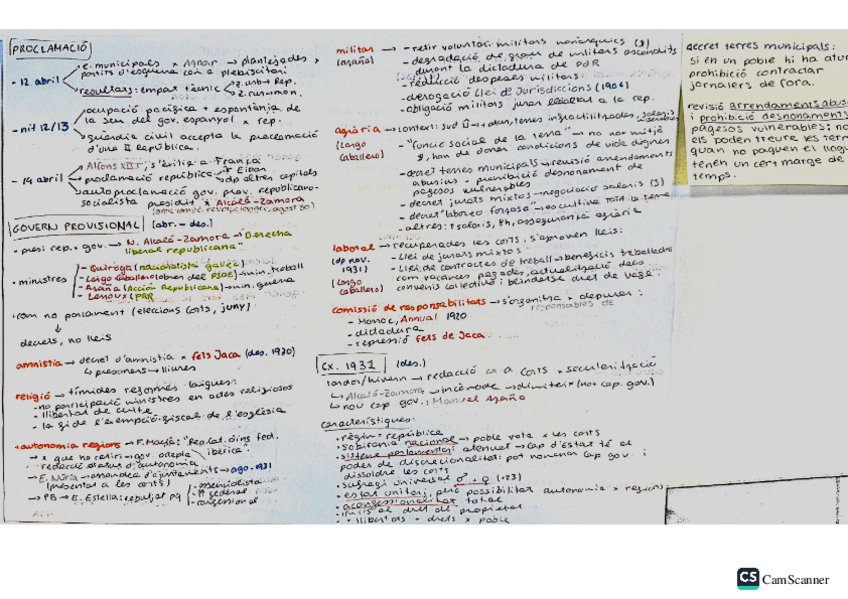 PROCLAMACIÓ
- 12 abril
e. municipals x Aznar → plantejades x
partits d'esquerra com a plebiscitari
resultats: empat tècnic
z. urb → Rep.
z. rur → mon.
- nit 12/13
ocupació pacífica + espontània de
la seu del gov. espanyol x rep.
guàrdia civil accepta la proclamació
d'una II República.
- 14 abril
Alfons XIII, s'exilia a França
proclamació república
Eibar
dp altres capitals
autoproclamació gov. prov. republicano-
socialista presidit x Alcalá-Zamora
GOVERN PROVISIONAL (abr. - des.)
• presi rep. + gov. → N. Alcalá-Zamora → Derecha
liberal republicana"
• ministres
- Quiroga (nacionalista gallec)
- Largo Caballero (obrer del PSOE) → min. treball
- Azaña (Acción Republicana) → min. guerra
- Lerroux (PRR)
• com no parlament (eleccions corts, juny)
↓
decrets, no lleis
amnistia → decret d'amnistia x fets Jaca (des. 1930)
↳ presoners → lliures
religió → tímides reformes laiques:
- no participació ministres en actes religiosos
- llibertat de culte
- la fi de l'exempció fiscal de l'església
• autonomia regions → F. Macià: "Rep. cat. dins fed.
ibèrica"
→ x que no retiri → gov. adepta
redacció estatus d'autonomia
→ E. Núria → assamblea d'ajuntaments → ago. 1931
(presentat a les corts)
→ PB → E. Estella: rebutjat pq
- assemblearista
- federal
- confessional
militar → - retir voluntari militars monàrquics (3)
(Azaña)
- degradació de grau de militars ascendits
durant la dictadura de PdR
- reducció despeses militars
- derogació Llei de Jurisdiccions (1906)
- obligació militars jurar lleialtat a la rep.
agrària → context: sud
(Largo
Caballero)
- "funció social de la terra" → no només mitjà
$, han de donar condicions de vida dignes
- decret termes municipals + revisió arrendaments
abusius + prohibició desnonament de
pagesos vulnerables
- decret jurats mixtos → negociació salaris (3)
- decret "laboreo forzoso" → es cultiva tota la terra
- altres: ↑ salaris, 8h, assegurança agrària
laboral → recuperades les corts, s'aproven lleis:
(dp nov.
1931)
(Largo
Caballero)
- Llei de jurats mixtos
- Llei de contractes de treball → beneficis treballadors
com vacances pagades, actualització dels
convenis col·lectius i blindatge dret de vaga
comissió de responsabilitats → s'organitza x depurar:
responsables de
- Monarc, Annual 1920
- dictadura
- repressió fets de Jaca
CX. 1931 (des.)
tardor/hivern → redacció cx a corts x secularització
↳ Alcalá-Zamora → incòmode → dimiteix (no cap gov.)
↳ nou cap gov.: Manuel Azaña
característiques:
• règim: república
• sobirania nacional → poble vota x les corts
• sistema parlamentari atenuat → cap d'estat té el
poder de discrecionalitat: pot nomenar cap gov i
dissoldre les corts
• sufragi universal ♂ + ♀ (+23)
• estat unitari, però possibilitat autonomia x regions
• aconfessionalitat total
• límits al dret de propietat
• + llibertats + drets x poble
decret terres municipals:
si en un poble hi ha atur
prohibició contractar
jornalers de fora.
revisió arrendaments abus
i prohibició desnonament
pagesos vulnerables: no
els poden treure les terr
quan no paguen el llog
tenen un cert marge de
temps.
CS CamScanner